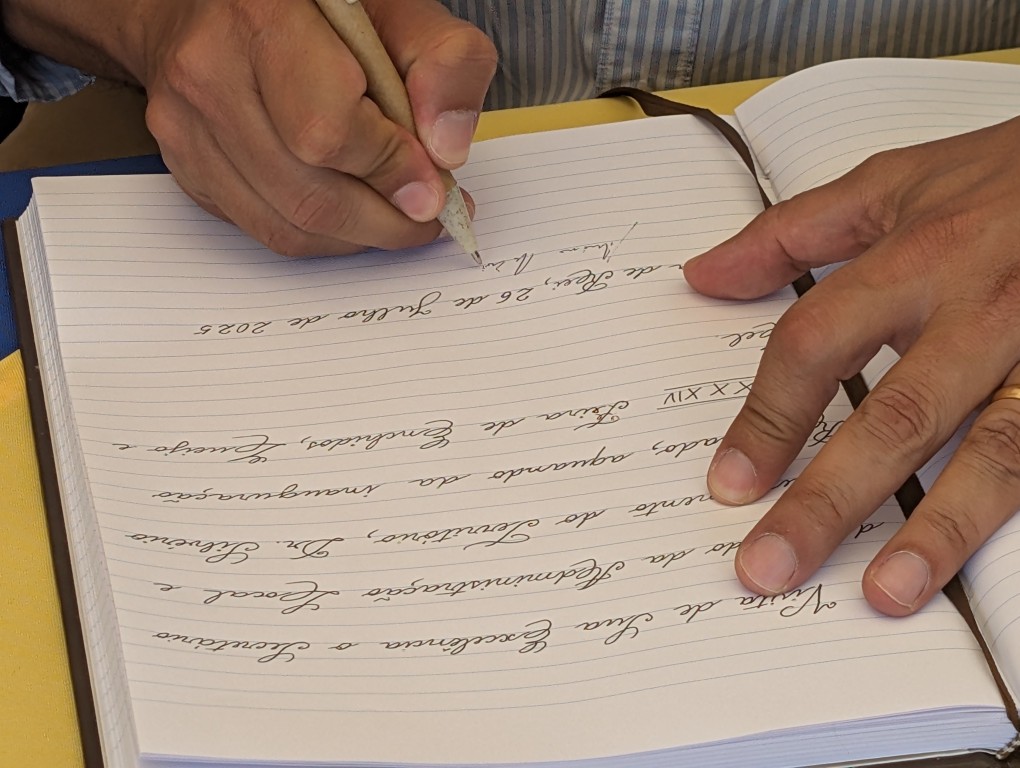 Visita de Sua Excelência o Secretário
do da Administração Local e
mento do Território, Dr. Silvério
ado, aquando da inauguração
XXXIV Feira de Enchidos, Queijo e
el.
de Rei, 26 de Julho de 2025